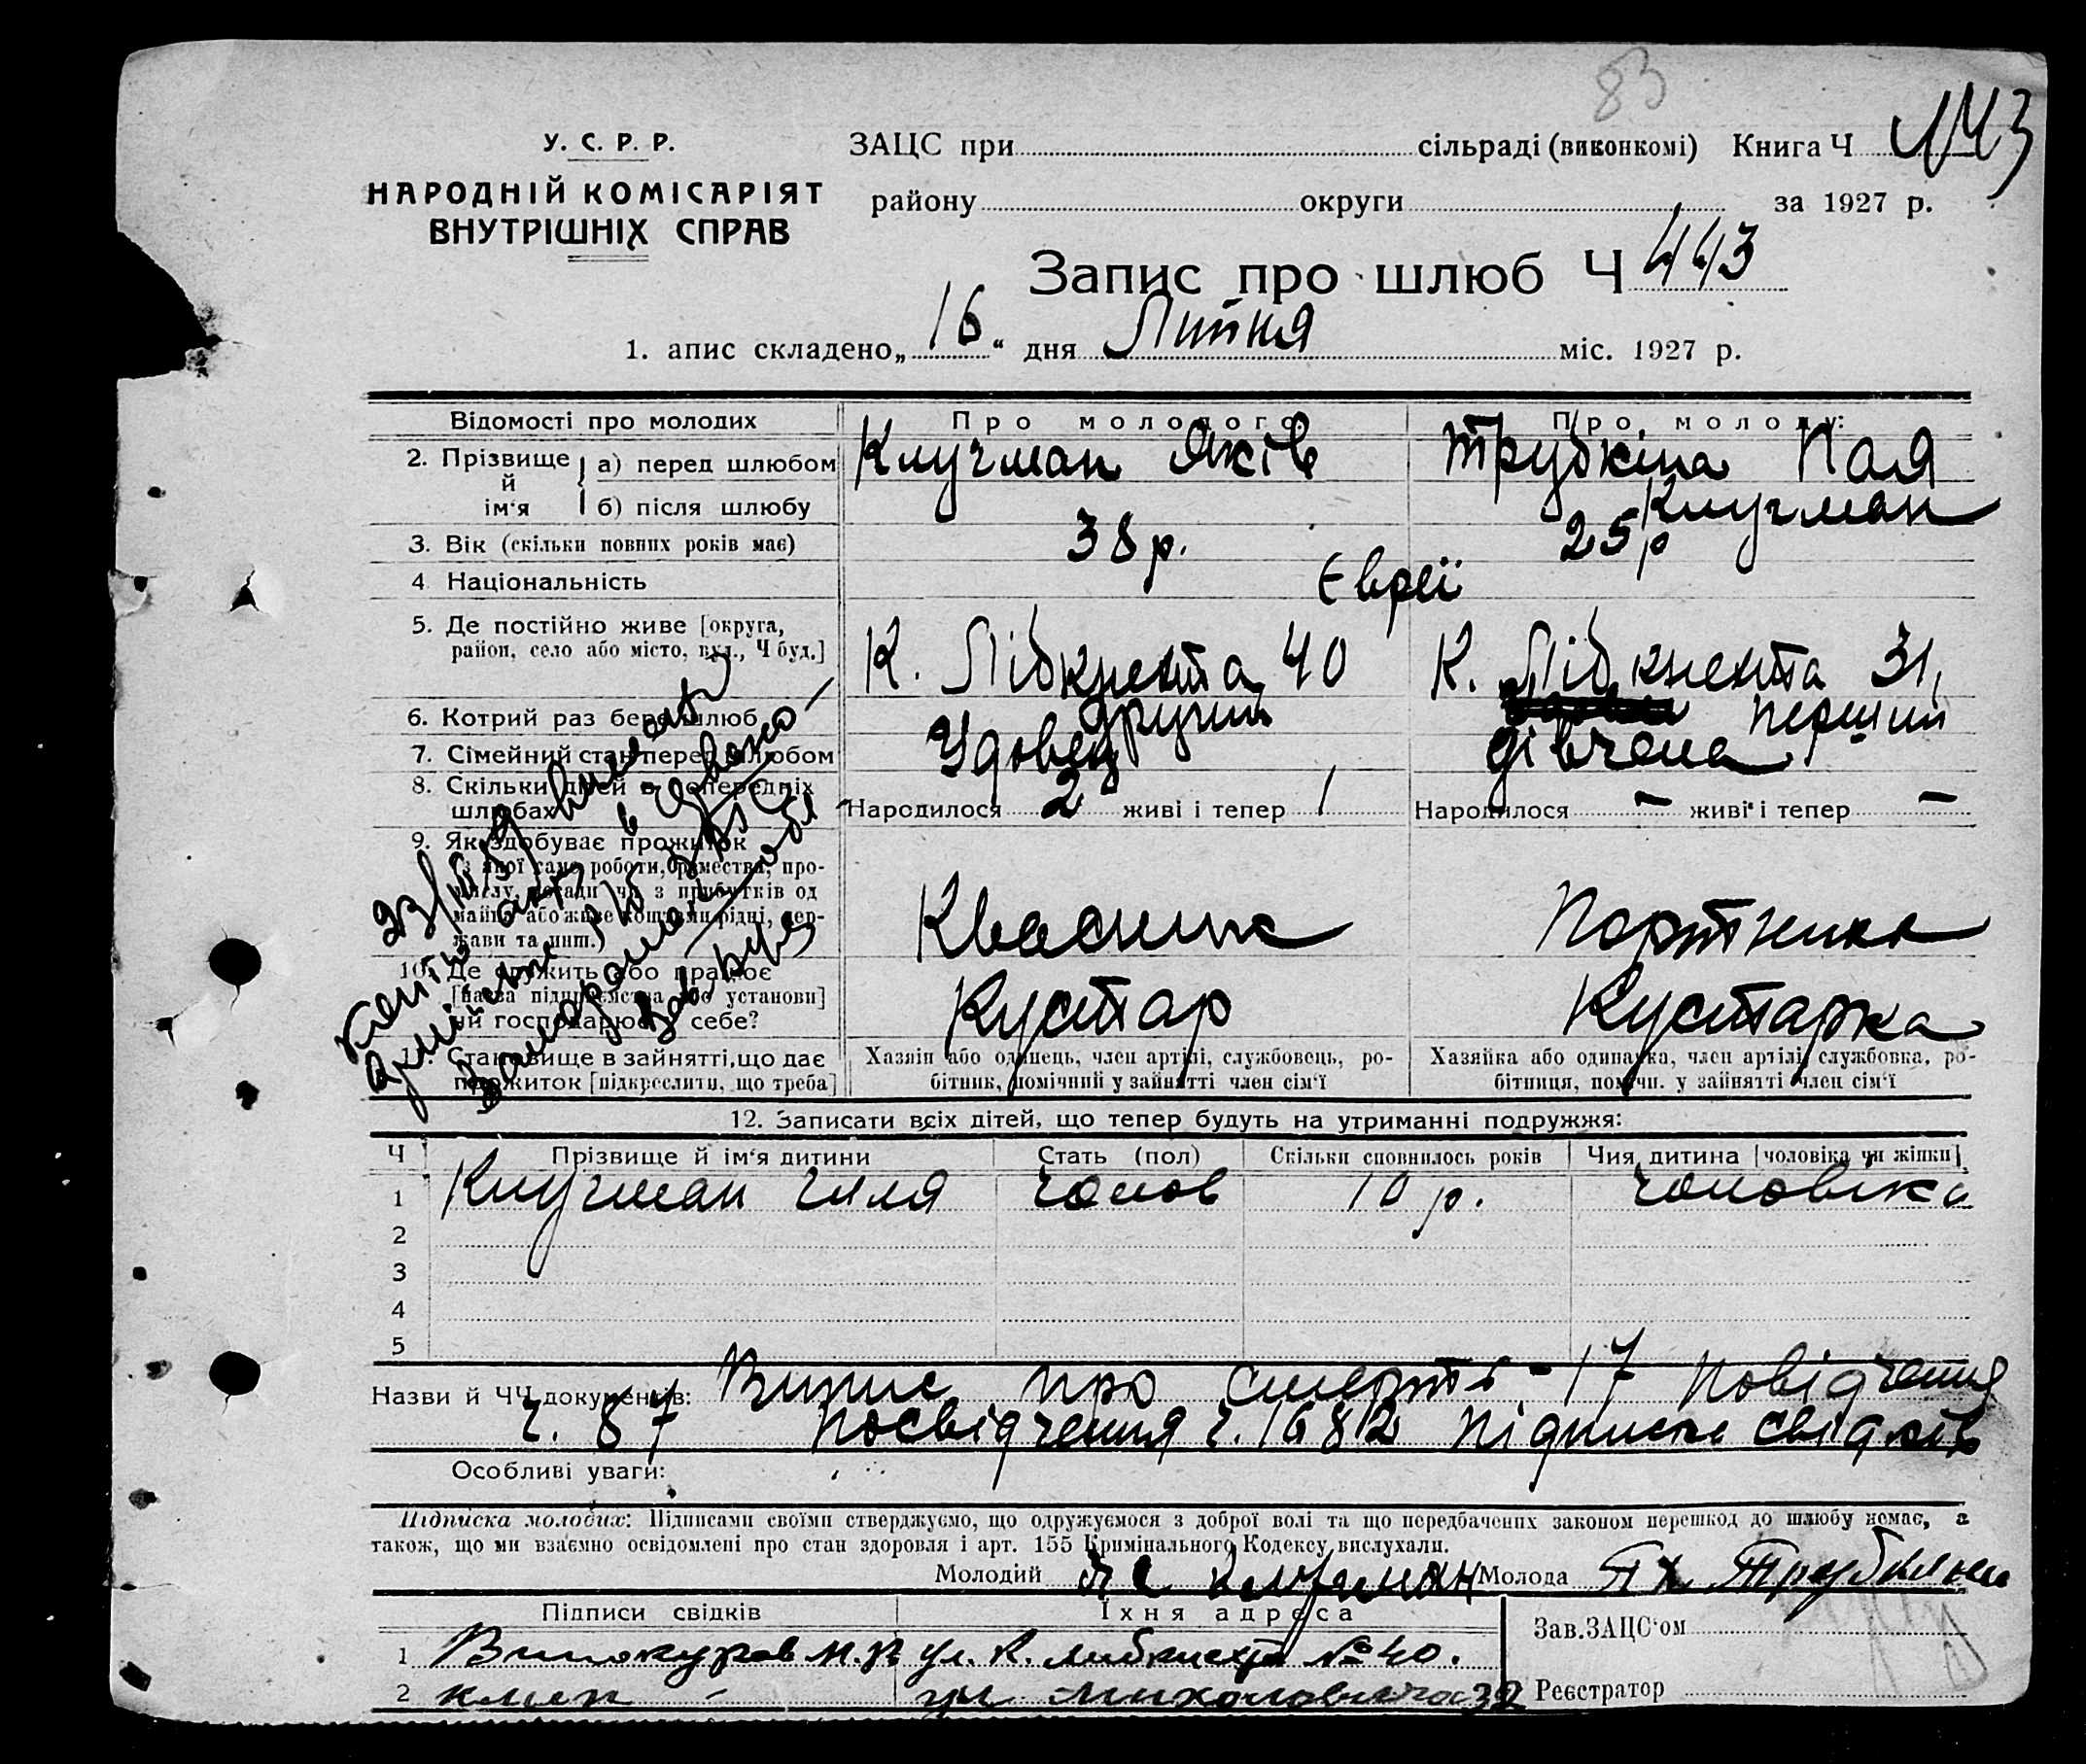 83
У. С. Р. Р.
НАРОДНІЙ КОМІСАРІЯТ
ВНУТРІШНІХ СПРАВ
ЗАЦС при сільраді (виконкомі) Книга Ч
району округи за 1927 р.
Запис про шлюб Ч 443
1. апис складено „16“ дня Липня міс. 1927 р.
Відомості про молодих Про молодого Про молоду:
2. Прізвище й ім'я а) перед шлюбом Клугман Яків Трубкіна Пая
б) після шлюбу Клугман
3. Вік (скільки повних років має) 38 р. 25 р
4 Національність Євреї
5. Де постійно живе [округа, район, село або місто, вул., Ч буд.] К. Лібкнехта 40 К. Лібкнехта 31,
6. Котрий раз бере шлюб другий перший
7. Сімейний стан перед шлюбом Удовец дівчена
8. Скільки дітей в попередніх шлюбах Народилося 2 живі і тепер 1 Народилося – живі і тепер –
9. Як здобуває прожиток
з якої саме роботи, ремества, про-
мислу, посади чи з прибутків од
майна або живе коштами рідні, дер-
жави та инш.) Квасник Портниха
10. Де служить або працює
[назва підприємства або установи]
чи господарює у себе? Кустар Кустарка
Становище в зайнятті, що дає прожиток [підкреслити, що треба] Хазяїн або одинець, член артілі, службовець, ро-
бітник, помічний у зайнятті член сім'ї
Хазяйка або одиначка, член артілі, службовка, ро-
бітниця, помічн. у зайнятті член сім'ї
12. Записати всіх дітей, що тепер будуть на утриманні подружжя:
Ч Прізвище й ім'я дитини Стать (пол) Скільки сповнилось років Чия дитина [чоловіка чи жінки]
1 Клугман Гиля чолов 10 р. чоловіка
2
3
4
5
Назви й ЧЧ документів: Випис про смерть - 17 Повідчення
ч. 87 посвідчення ч. 1682 підписка свідків
Особливі уваги:
Підписка молодих: Підписами своїми стверджуємо, що одружуємося з доброї волі та що передбачених законом перешкод до шлюбу немає, а
також, що ми взаємно освідомлені про стан здоровля і арт. 155 Кримінального Кодексу вислухали.
Молодий Клугман Молода Трубкина
Підписи свідків Їхня адреса
1 Винокуров М. ул. К. Либкнехта № 40.
2 ул 32
Зав.ЗАЦС'ом
Реєстратор